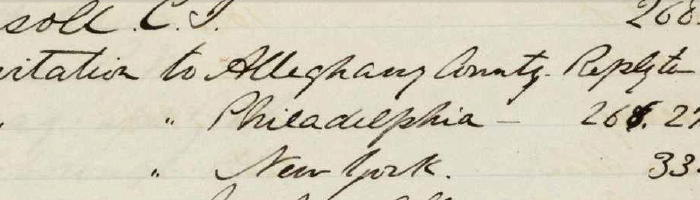 soll. C. J. 268.
vitation to Alleghany County. Reply to
" " Philadelphia — 268. 27
" New York. 33.